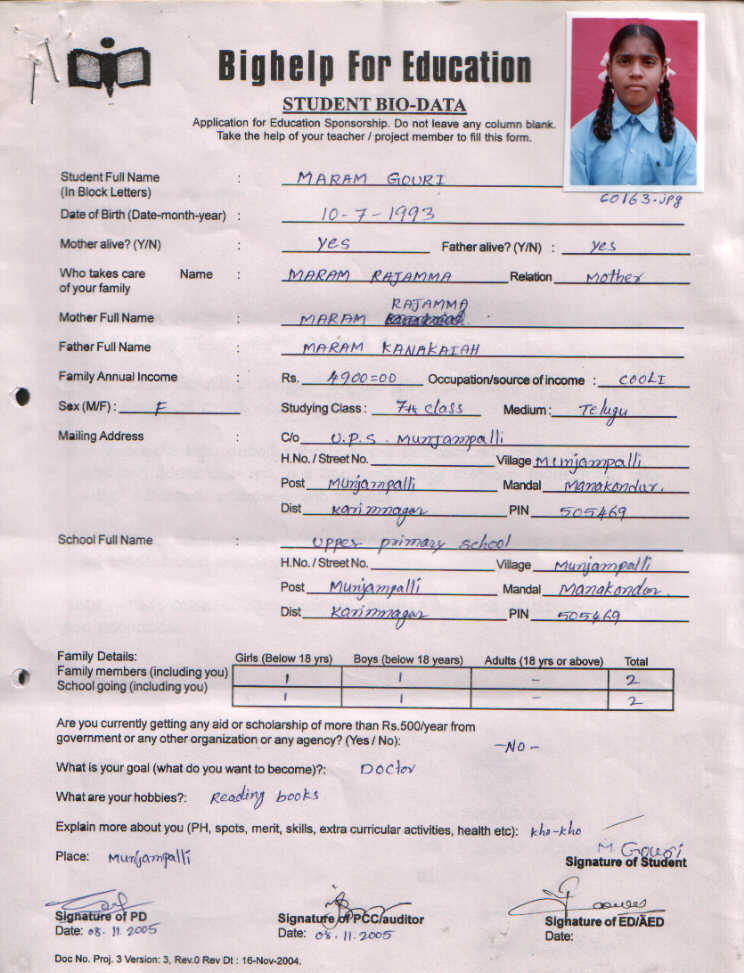 Bighelp For Education
STUDENT BIO-DATA
Application for Education Sponsorship. Do not leave any column blank.
Take the help of your teacher / project member to fill this form.
60163-jpg
Student Full Name (In Block Letters) : MARAM GOURI
Date of Birth (Date-month-year) : 10-7-1993
Mother alive? (Y/N) : yes Father alive? (Y/N) : yes
Who takes care of your family Name : MARAM RAJAMMA Relation mother
Mother Full Name : MARAM RAJAMMA
Father Full Name : MARAM KANAKAIAH
Family Annual Income : Rs. 4900=00 Occupation/source of income : COOLI
Sex (M/F) : F Studying Class : 7th class Medium : Telugu
Mailing Address : C/o U.P.S. Munjampalli
H.No. / Street No. Village Munjampalli
Post Munjampalli Mandal Manakondur.
Dist Karimnagar PIN 505469
School Full Name : Upper primary school
H.No. / Street No. Village Munjampalli
Post Munjampalli Mandal Manakondur.
Dist Karimnagar PIN 505469
Family Details: Girls (Below 18 yrs) Boys (below 18 years) Adults (18 yrs or above) Total
Family members (including you) 1 1 - 2
School going (including you) 1 1 - 2
Are you currently getting any aid or scholarship of more than Rs.500/year from
government or any other organization or any agency? (Yes / No): -No-
What is your goal (what do you want to become)?: Doctor
What are your hobbies?: Reading books
Explain more about you (PH, spots, merit, skills, extra curricular activities, health etc): kho-kho
Place: Munjampalli M Gouri
Signature of Student
Signature of PD Signature of PCC/auditor Signature of ED/AED
Date: 08.11.2005 Date: 08.11.2005 Date:
Doc No. Proj. 3 Version: 3, Rev.0 Rev Dt : 16-Nov-2004.